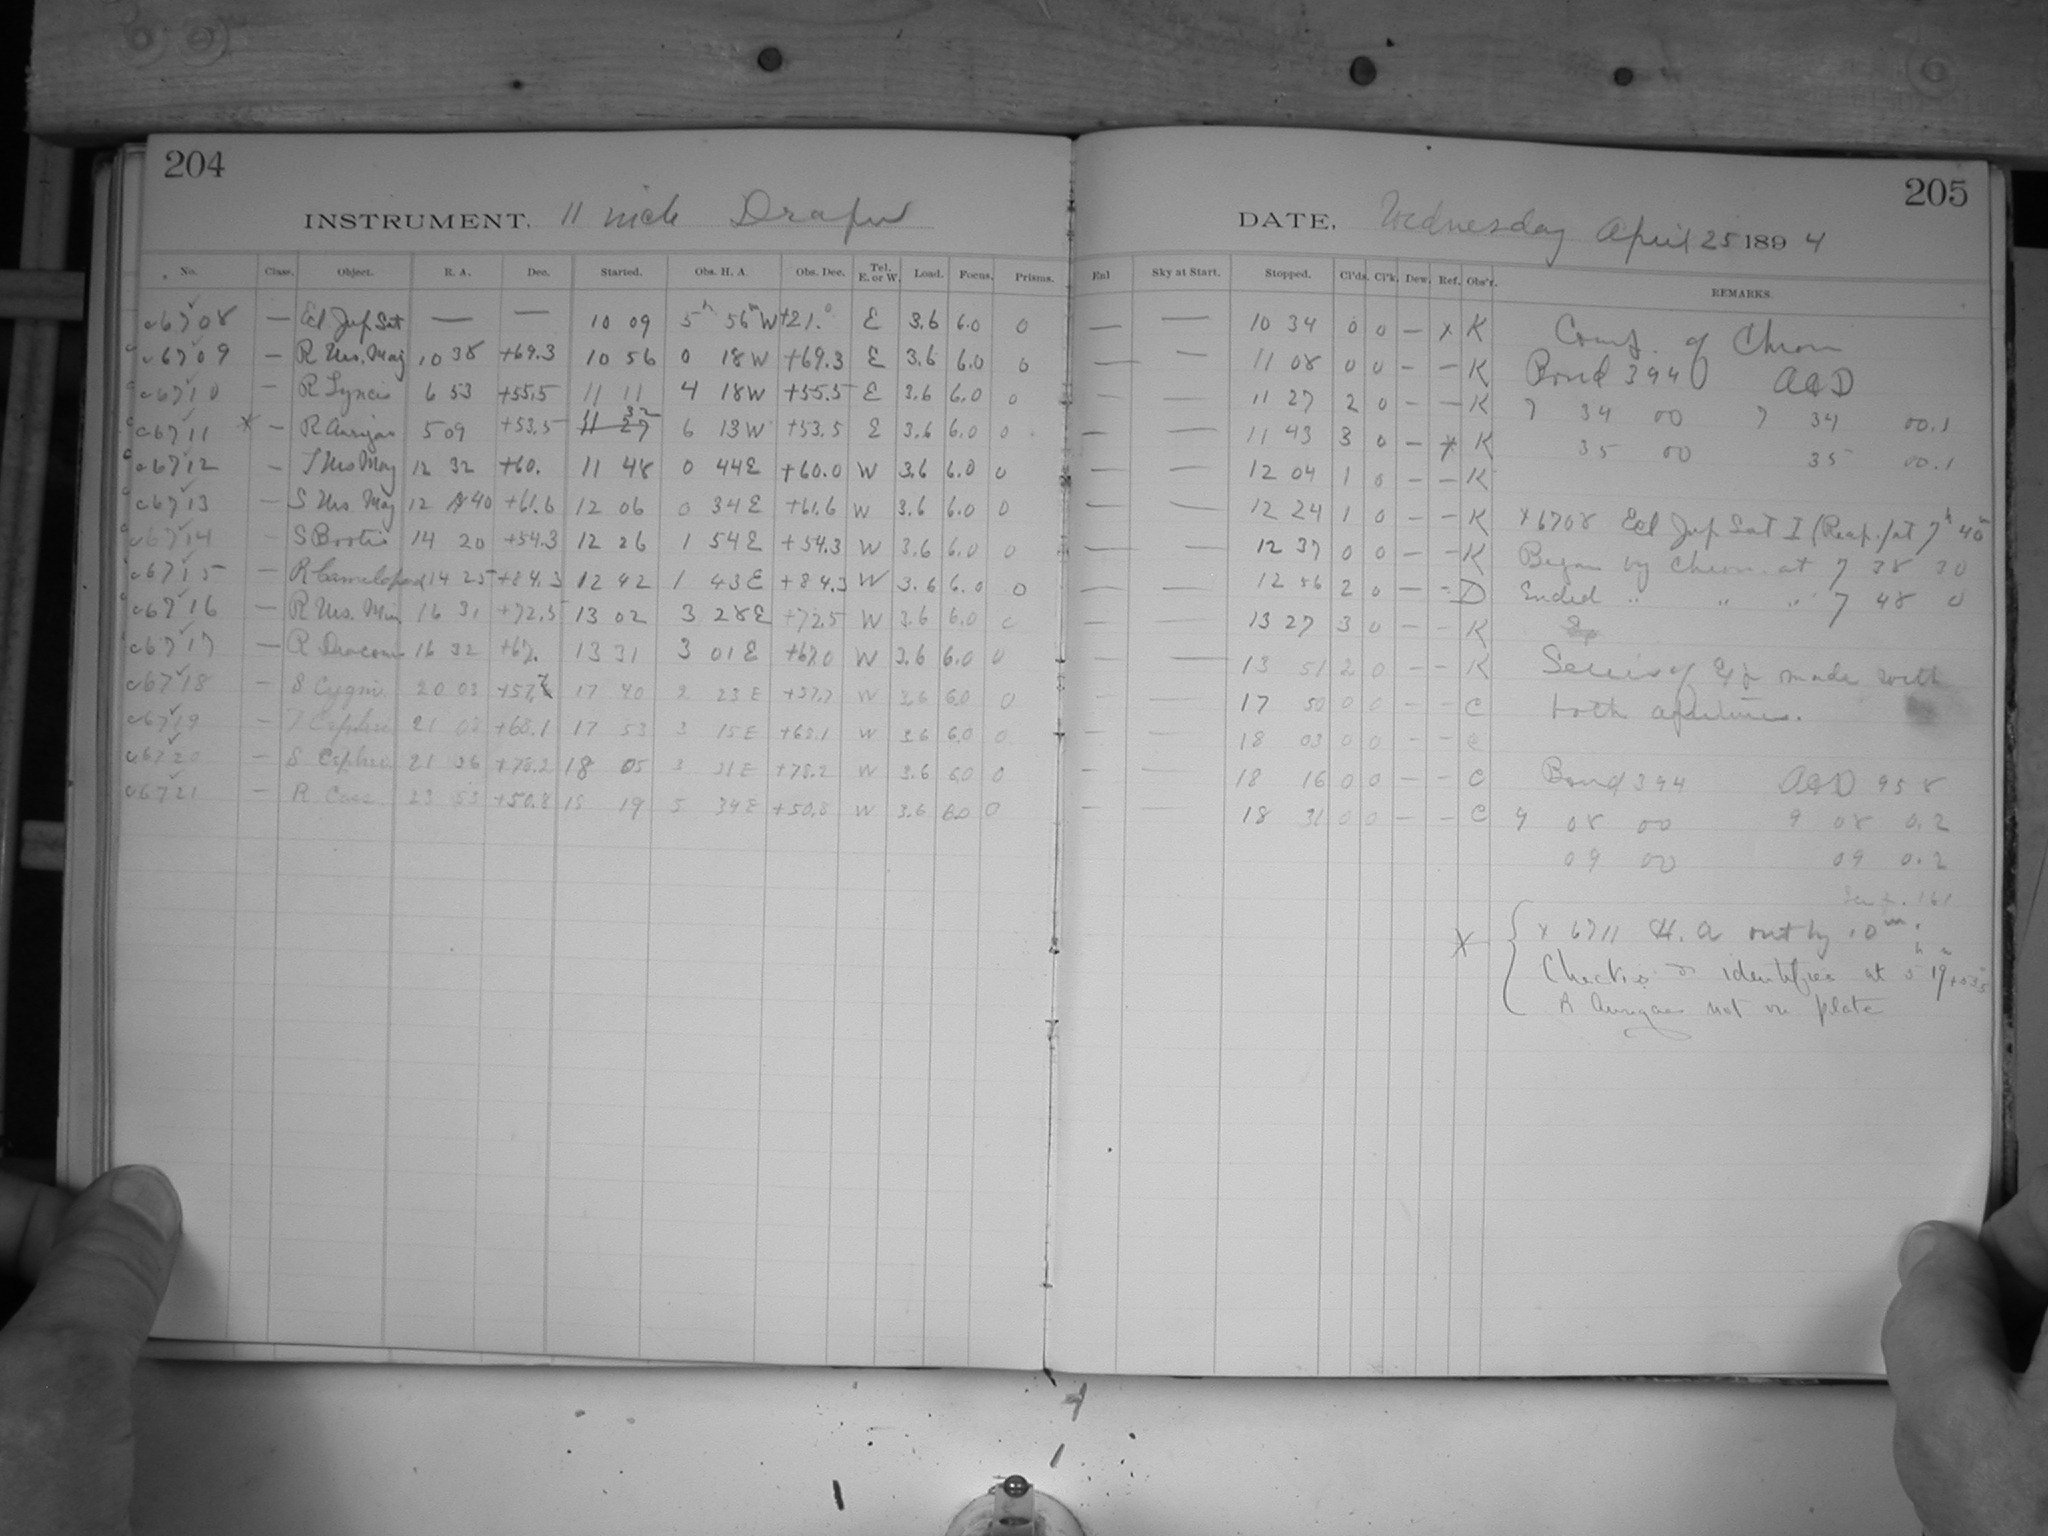 204
INSTRUMENT. 11 inch Draper
No. Class. Object. R. A. Dec. Started. Obs. H. A. Obs. Dec. Tel. E. or W. Load. Focus. Prisms.
c6708 — Ecl Jup Sat — — 10 09 5h 56m W +21.° E 3.6 6.0 0
c6709 — R Urs. Maj 10 38 +69.3 10 56 0 18 W +69.3 E 3.6 6.0 0
c6710 — R Lyncis 6 53 +55.5 11 11 4 18 W +55.5 E 3.6 6.0 0
c6711 * — R Aurigae 5 09 +53.5 11 27 32 6 13 W +53.5 E 3.6 6.0 0
c6712 — T Urs Maj 12 32 +60. 11 48 0 44 E +60.0 W 3.6 6.0 0
c6713 — S Urs Maj 12 40 +61.6 12 06 0 34 E +61.6 W 3.6 6.0 0
c6714 — S Bootis 14 20 +54.3 12 26 1 54 E +54.3 W 3.6 6.0 0
c6715 — R Camelopard 14 25 +84.3 12 42 1 43 E +84.3 W 3.6 6.0 0
c6716 — R Urs. Min 16 31 +72.5 13 02 3 28 E +72.5 W 3.6 6.0 0
c6717 — R Draconis 16 32 +67. 13 31 3 01 E +67.0 W 3.6 6.0 0
c6718 — S Cygni 20 03 +57.7 17 40 2 23 E +57.7 W 3.6 6.0 0
c6719 — T Cephei 21 08 +68.1 17 53 3 15 E +68.1 W 3.6 6.0 0
c6720 — S Cephei 21 36 +78.2 18 05 3 31 E +78.2 W 3.6 6.0 0
c6721 — R Cass. 23 53 +50.8 18 19 5 34 E +50.8 W 3.6 6.0 0
205
DATE, Wednesday April 25 1894
Enl Sky at Start. Stopped. Cl'ds. Cl'k. Dew. Ref. Obs'r. REMARKS.
— — 10 34 0 0 — x K
— — 11 08 0 0 — — K
— — 11 27 2 0 — — K
— — 11 43 3 0 — x K
— — 12 04 1 0 — — K
— — 12 24 1 0 — — K
— — 12 37 0 0 — — K
— — 12 56 2 0 — — D
— — 13 27 3 0 — — K
— — 13 51 2 0 — — K
— — 17 50 0 0 — — C
— — 18 03 0 0 — — C
— — 18 16 0 0 — — C
— — 18 31 0 0 — — C
Comp. of Chron
Bond 394 A&D
7 34 00 7 34 00.1
35 00 35 00.1
x 6708 Ecl Jup Sat I (Reap.) at 7h 40m
Began by Chron. at 7 38 30
Ended " " " 7 48 0
Series of Exp made with
both apertures.
Bond 394 A&D 958
9 08 00 9 08 0.2
09 00 09 0.2
x 6711 H. A out by 10m.
identified at 5h 19m +53.5
R Aurigae not on plate